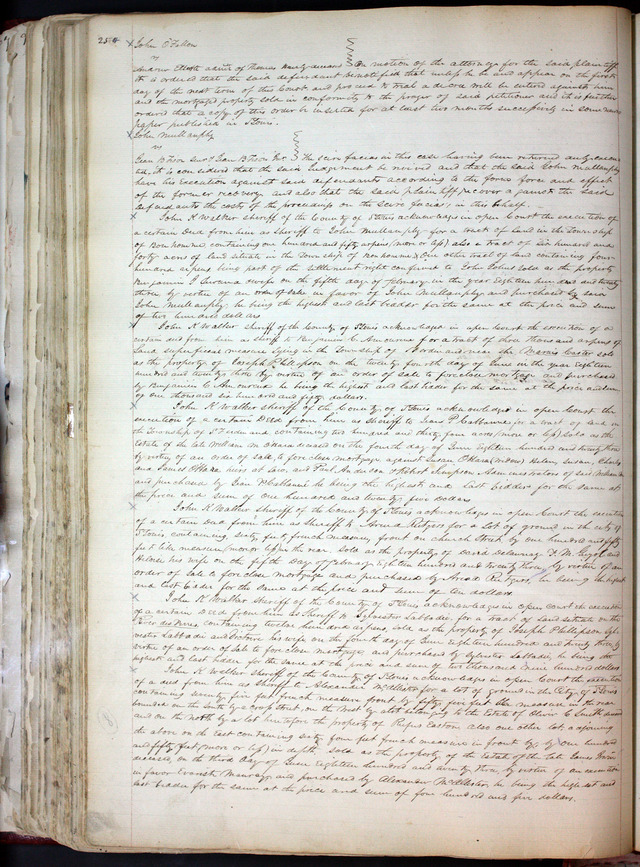 254
John O'Fallon
vs
Andrew Elliott admr of Thomas Hanly deceased On motion of the attorney for the said plaintiff
it is ordered that the said defendant be notified that unless he be and appear on the first
day of the next term of this Court and proceed to trial a decree will be entered against him
and the mortgaged property sold in conformity to the prayer of said petitioner and it is further
ordered that a copy of this order be inserted for at least two months successively in some news
paper published in St Louis.
John Mullanphy
vs
The scire facias in this case having been returned duly execu
ted, it is considered that the said Judgement be revived and that the said John Mullanphy
have his execution against said defendants according to the force form and effect
of the former recovery and also that the said plaintiff recover against the said
defendants the costs of the proceedings on the scire facias, in this behalf.
John K Walker sheriff of the County of St Louis acknowledges in open Court the execution of
a certain Deed from him as Sheriff to John Mullanphy for a tract of land in the Township
of Bon homme, containing one hundred and fifty arpens (more or less) also a tract of six hundred and
forty acres of land situate in the Township of Bon homme, One other tract of land containing four
hundred arpens being part of the settlement right confirmed to John sold as the property
Benjamin on the fifth day of February in the year Eighteen hundred and twenty
three by virtue of an order of sale in favor of John Mullanphy and purchased by said
John Mullanphy he being the highest and last bidder for the same at the price and sum
of two hundred dollars
John K Walker sheriff of the County of St Louis acknowledges in open Court the execution of a
certain deed from him as sheriff to Benjamin C Amonernia for a tract of three thousand arpens of
Land superficial measure lying in the Township of and near the sold
as the property of Joseph Philipson on the twenty fourth day of June in the year Eighteen
hundred and twenty three by virtue of an order of sale to foreclose mortgage and purchased
by Benjamin C he being the highest and last bidder for the same at the price and sum
of one thousand six hundred and fifty dollars.
John K Walker sheriff of the County of St Louis acknowledges in open Court the
execution of a certain Deed from him as Sheriff to Jean P Cabanne for a tract of land in
the Township of St Ferdinand containing two hundred and thirty four acres (more or less) sold as the
estate of the late William O'Hara deceased on the fourth day of June Eighteen hundred and twenty three
by virtue of an order of sale to foreclose mortgage against Susan O'Hara (widow) Helen, Susan, Charles
and James O'Hara heirs at Law, and Paul Anderson & Robert Simpson Administrators of said William
and purchased by Jean P Cabanne he being the highest and last bidder for the same at
the price and sum of One hundred and twenty five dollars
John K Walker sheriff of the County of St Louis acknowledges in open Court the execution
of a certain Deed from him as Sheriff to Arend Rutgers for a Lot of ground in the city of
St Louis containing sixty feet french measure front on Church Street by One hundred and fifty
feet like measure (more or less) in the rear. Sold as the property of David Delaunay, and
his wife on the fifth day of February Eighteen hundred and twenty three by virtue of an
order of sale to foreclose mortgage and purchased by Arend Rutgers, he being the highest
and last bidder for the same at the price and sum of ten dollars.
John K Walker sheriff of the County of St Louis acknowledges in open Court the execution
of a certain Deed from him as Sheriff to Sylvester Labbadie for a tract of Land situate on the
River des Peres containing twelve hundred arpens, sold as the property of Joseph Philipson Syl-
vester Labbadie and Victoire his wife on the fourth day of June Eighteen hundred and twenty three by
virtue of an order of sale to foreclose mortgage, and purchased by Sylvester Labbadie, he being the
highest and last bidder for the same at the price and sum of two thousand nine hundred dollars
John K Walker Sheriff of the County of St Louis acknowledges in open Court the execution
of a deed from him as Sheriff to Alexander McAllister for a lot of ground in the City of St Louis
containing seventy five feet french measure front by fifty five feet like measure in the rear
bounded on the South by a cross street, on the West by a lot belonging to the Estate of Oliver C Smith decd
and on the north by a lot heretofore the property of Rufus Easton also one other lot adjoining
the above on the East containing sixty four feet french measure in front by one hundred
and fifty feet (more or less) in depth sold as the property of the Estate of the late James Irwin
deceased, on the third day of June Eighteen hundred and twenty three, by virtue of an execution
in favor and purchased by Alexander McAllister, he being the highest and
last bidder for the same at the price and sum of four hundred and five dollars.